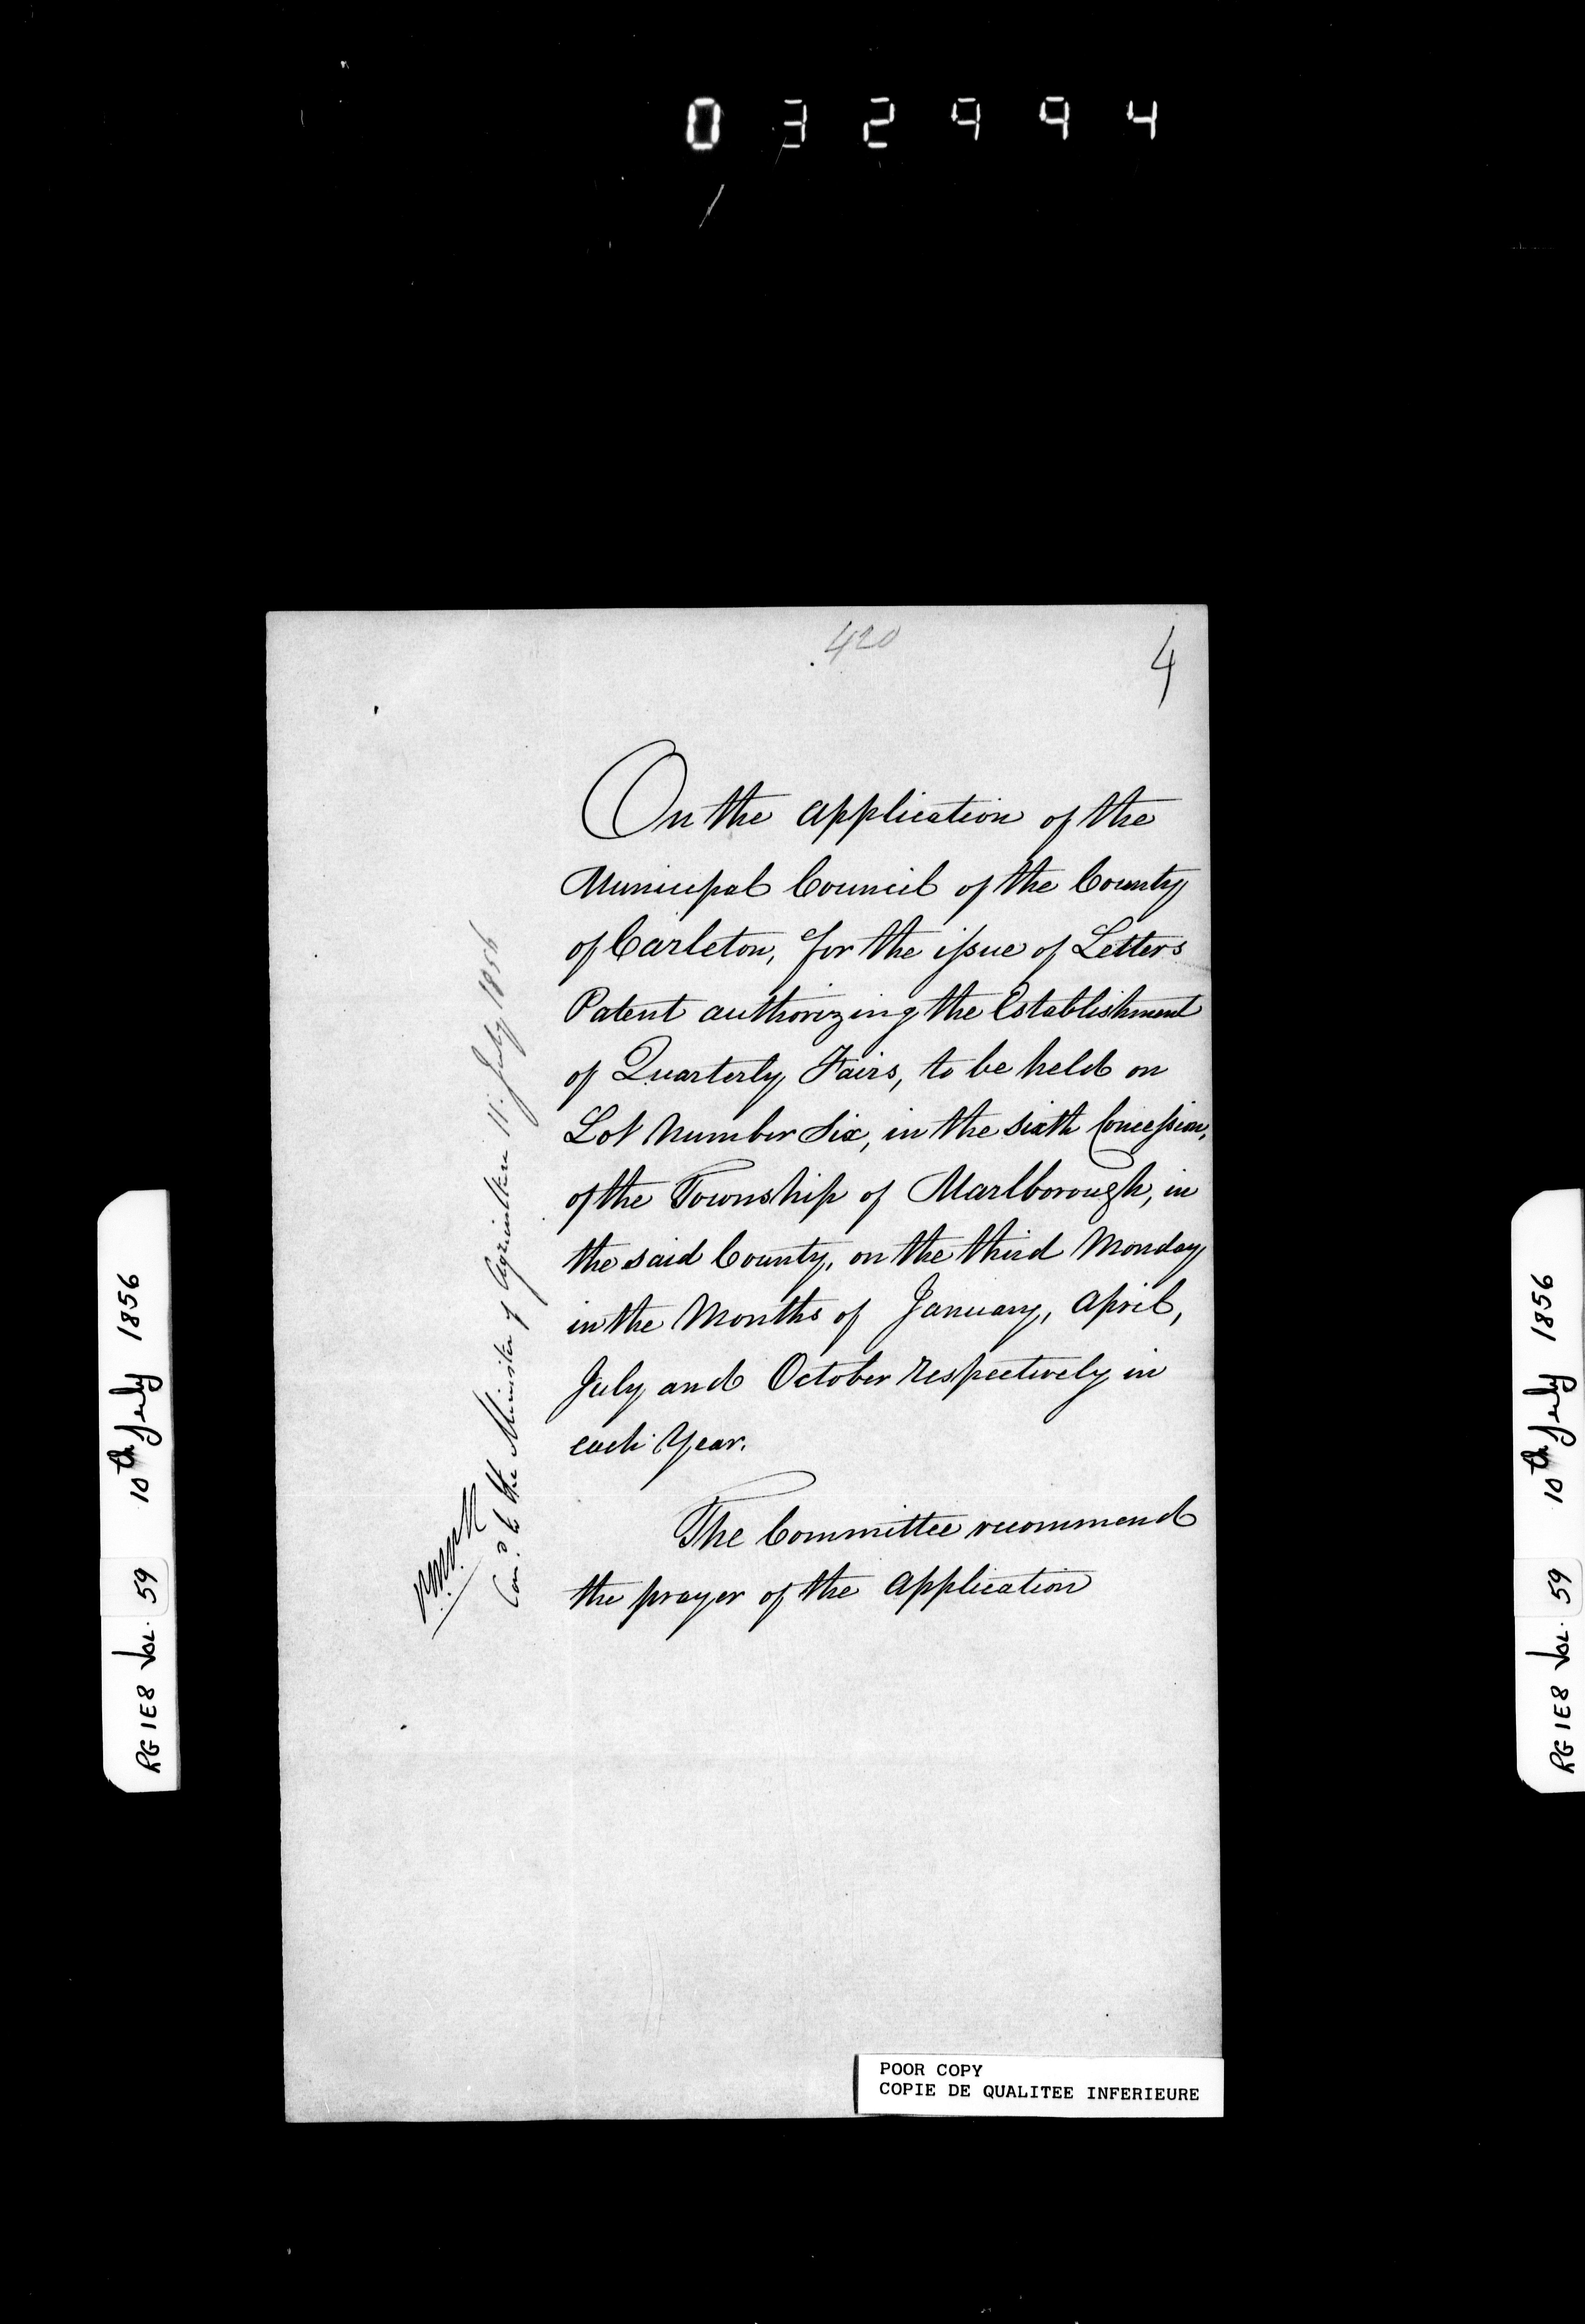 032994
420
4
On the application of the
Municipal Council of the County
of Carleton, for the issue of Letters
Patent authorizing the Establishment
of Quarterly Fairs, to be held on
Lot Number Six, in the sixth Concession,
of the Township of Marlborough, in
the said County, on the third Monday
in the Months of January, April,
July and October respectively in
each Year.
The Committee recommend
the prayer of the application
Com.d to the Minister of Agriculture 11. July 1856
RG 1E8 Vol. 59 10th July 1856
RG 1E8 Vol. 59 10th July 1856
POOR COPY
COPIE DE QUALITEE INFERIEURE